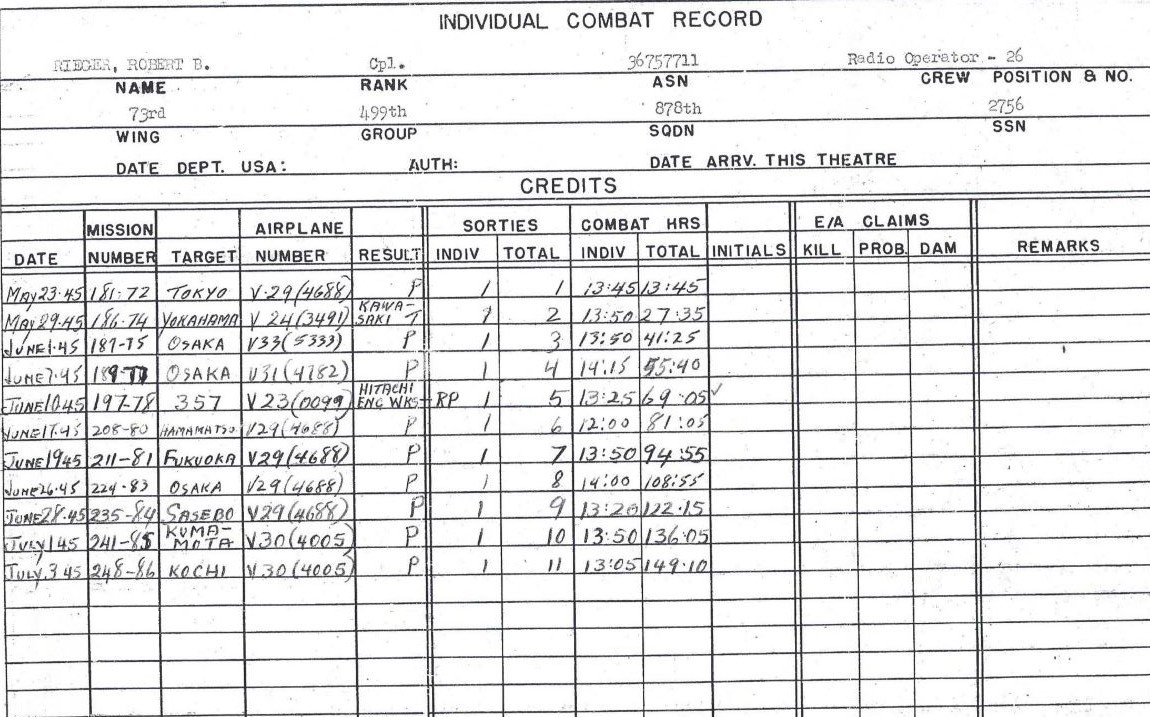 INDIVIDUAL COMBAT RECORD
RIEGER, ROBERT B. Cpl. 36757711 Radio Operator - 26
NAME RANK ASN CREW POSITION & NO.
73rd 499th 878th 2756
WING GROUP SQDN SSN
DATE DEPT. USA: AUTH: DATE ARRV. THIS THEATRE
CREDITS
MISSION AIRPLANE SORTIES COMBAT HRS E/A CLAIMS
DATE NUMBER TARGET NUMBER RESULT INDIV TOTAL INDIV TOTAL INITIALS KILL PROB. DAM REMARKS
MAY 23·45 181-72 TOKYO V-29(4688) P 1 1 13:45 13:45
MAY 29·45 186-74 YOKAHAMA V 24(3491) KAWA-SAKI T 1 2 13:50 27:35
JUNE 1·45 187-75 OSAKA V33(5333) P 1 3 13:50 41:25
JUNE 7·45 189-77 OSAKA V31(4782) P 1 4 14:15 55:40
JUNE 10 45 197-78 357 V23(0099) HITACHI ENG WKS- RP 1 5 13:25 69:05✓
JUNE 17·45 208-80 HAMAMATSU V29(4688) P 1 6 12:00 81:05
JUNE 19 45 211-81 FUKUOKA V29(4688) P 1 7 13:50 94:55
JUNE 26·45 224-83 OSAKA V29(4688) P 1 8 14:00 108:55
JUNE 28·45 235-84 SASEBO V29(4688) P 1 9 13:20 122:15
JULY 1 45 241-85 KUMA-MOTA V30(4005) P 1 10 13:50 136:05
JULY 3 45 248-86 KOCHI V30(4005) P 1 11 13:05 149:10